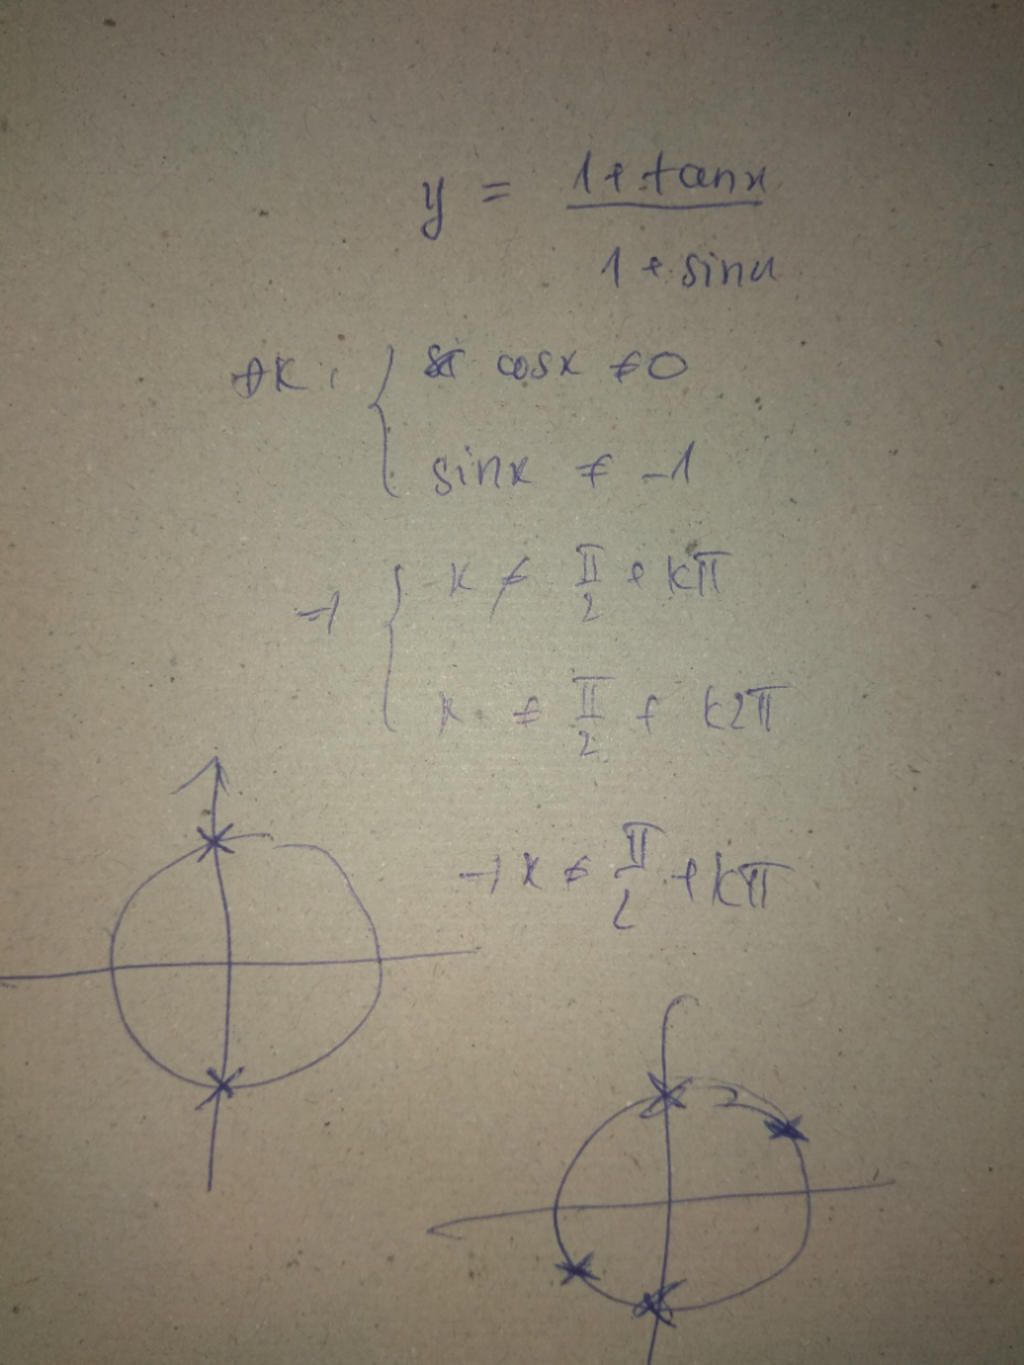 y = 1 + tanx
1 + sinx
ĐK: { cosx ≠ 0
sinx ≠ -1
→ { x ≠ π/2 + kπ
x ≠ π/2 + k2π
→ x ≠ π/2 + kπ